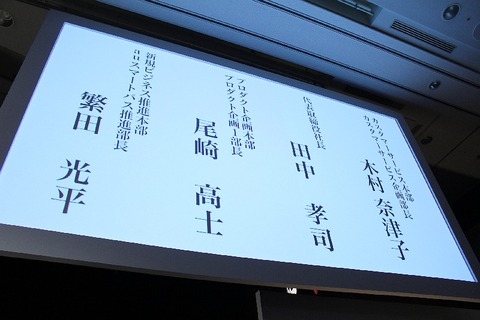 カスタマーサービス本部
カスタマーサービス企画部長
木村 奈津子
代表取締役社長
田中 孝司
プロダクト企画本部
プロダクト企画1部長
尾崎 高士
新規ビジネス推進本部
auスマートパス推進部長
繁田 光平